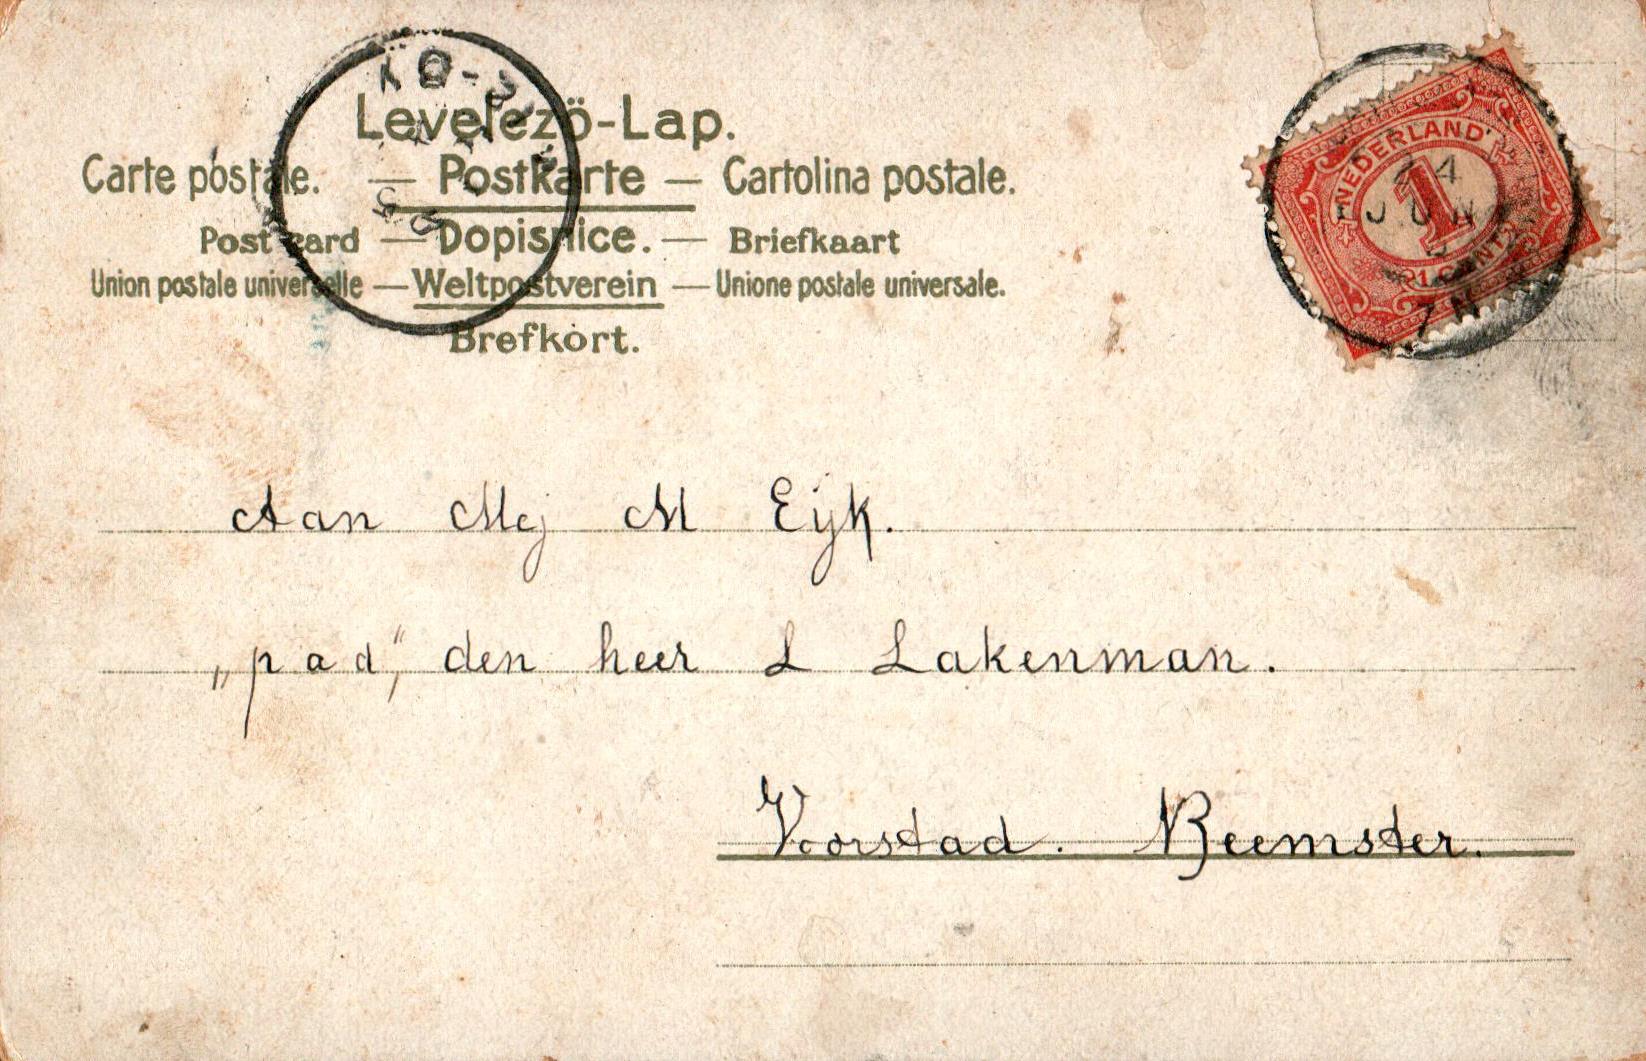 Levelező-Lap.
Carte postale. — Postkarte — Cartolina postale.
Post card — Dopisnice. — Briefkaart
Union postale universelle — Weltpostverein — Unione postale universale.
Brefkort.
NEDERLAND
1
1 CENT
24
JUN
7 N
Aan Mej M Eijk.
„pad", den heer L Lakenman.
Voorstad. Beemster.